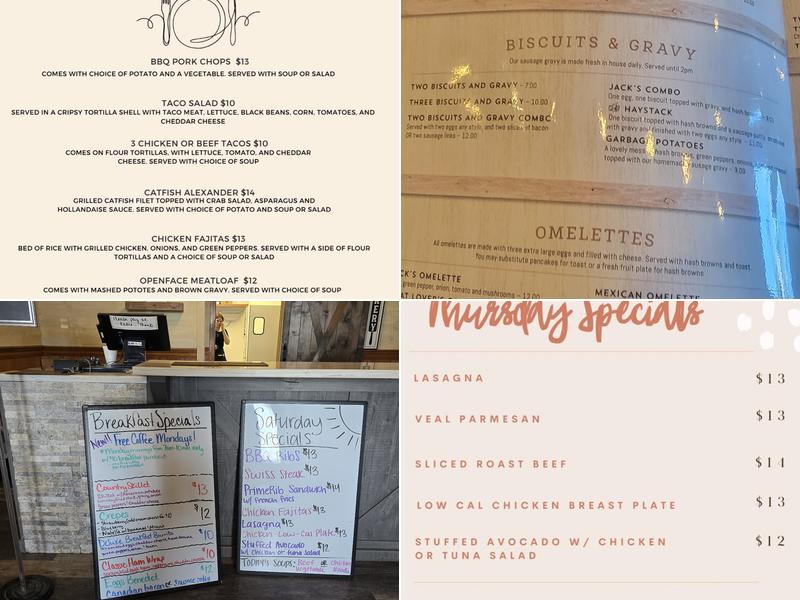 BBQ PORK CHOPS $13
COMES WITH CHOICE OF POTATO AND A VEGETABLE. SERVED WITH SOUP OR SALAD
TACO SALAD $10
SERVED IN A CRIPSY TORTILLA SHELL WITH TACO MEAT, LETTUCE, BLACK BEANS, CORN, TOMATOES, AND
CHEDDAR CHEESE
3 CHICKEN OR BEEF TACOS $10
COMES ON FLOUR TORTILLAS, WITH LETTUCE, TOMATO, AND CHEDDAR
CHEESE. SERVED WITH CHOICE OF SOUP
CATFISH ALEXANDER $14
GRILLED CATFISH FILET TOPPED WITH CRAB SALAD, ASPARAGUS AND
HOLLANDAISE SAUCE. SERVED WITH CHOICE OF POTATO AND SOUP OR SALAD
CHICKEN FAJITAS $13
BED OF RICE WITH GRILLED CHICKEN, ONIONS, AND GREEN PEPPERS. SERVED WITH A SIDE OF FLOUR
TORTILLAS AND A CHOICE OF SOUP OR SALAD
OPENFACE MEATLOAF $12
COMES WITH MASHED POTOTES AND BROWN GRAVY. SERVED WITH CHOICE OF SOUP
BISCUITS & GRAVY
Our sausage gravy is made fresh in house daily. Served until 2pm
TWO BISCUITS AND GRAVY - 7.00
THREE BISCUITS AND GRAVY - 10.00
TWO BISCUITS AND GRAVY COMBO
Served with two eggs any style, and two slices of bacon
OR two sausage links - 12.00
JACK'S COMBO
One egg, one biscuit topped with gravy, and hash
HAYSTACK
One biscuit topped with hash browns and a sausage patty
with gravy and finished with two eggs any style - 11.00
GARBAGE POTATOES
A lovely mess of hash browns, green peppers, onions,
topped with our homemade sausage gravy - 9.00
OMELETTES
All omelettes are made with three extra large eggs and filled with cheese. Served with hash browns and toast.
You may substitute pancakes for toast or a fresh fruit plate for hash browns
CK'S OMELETTE
green pepper, onion, tomato and mushrooms - 12.00
MEXICAN OMELETTE
Please pay at
Breakfast Specials
New!! Free Coffee Mondays!
Country Skillet $13
Crepes $12
Deluxe Breakfast Burrito $10
Classic Ham Wrap $10
Eggs Benedict $12
Canadian bacon or Sausage patty
Saturday
Specials
BBQ Ribs $13
Swiss Steak $13
Prime Rib Sandwich $14
w/ French Fries
Chicken Fajitas $13
Lasagna $13
Chicken-Low-Cal Plate $13
Stuffed Avocado $12
w/ Chicken or tuna Salad
TODAY'S SOUPS: Beef Vegetable or Chicken Noodle
Thursday Specials
LASAGNA $13
VEAL PARMESAN $13
SLICED ROAST BEEF $14
LOW CAL CHICKEN BREAST PLATE $13
STUFFED AVOCADO W/ CHICKEN $12
OR TUNA SALAD